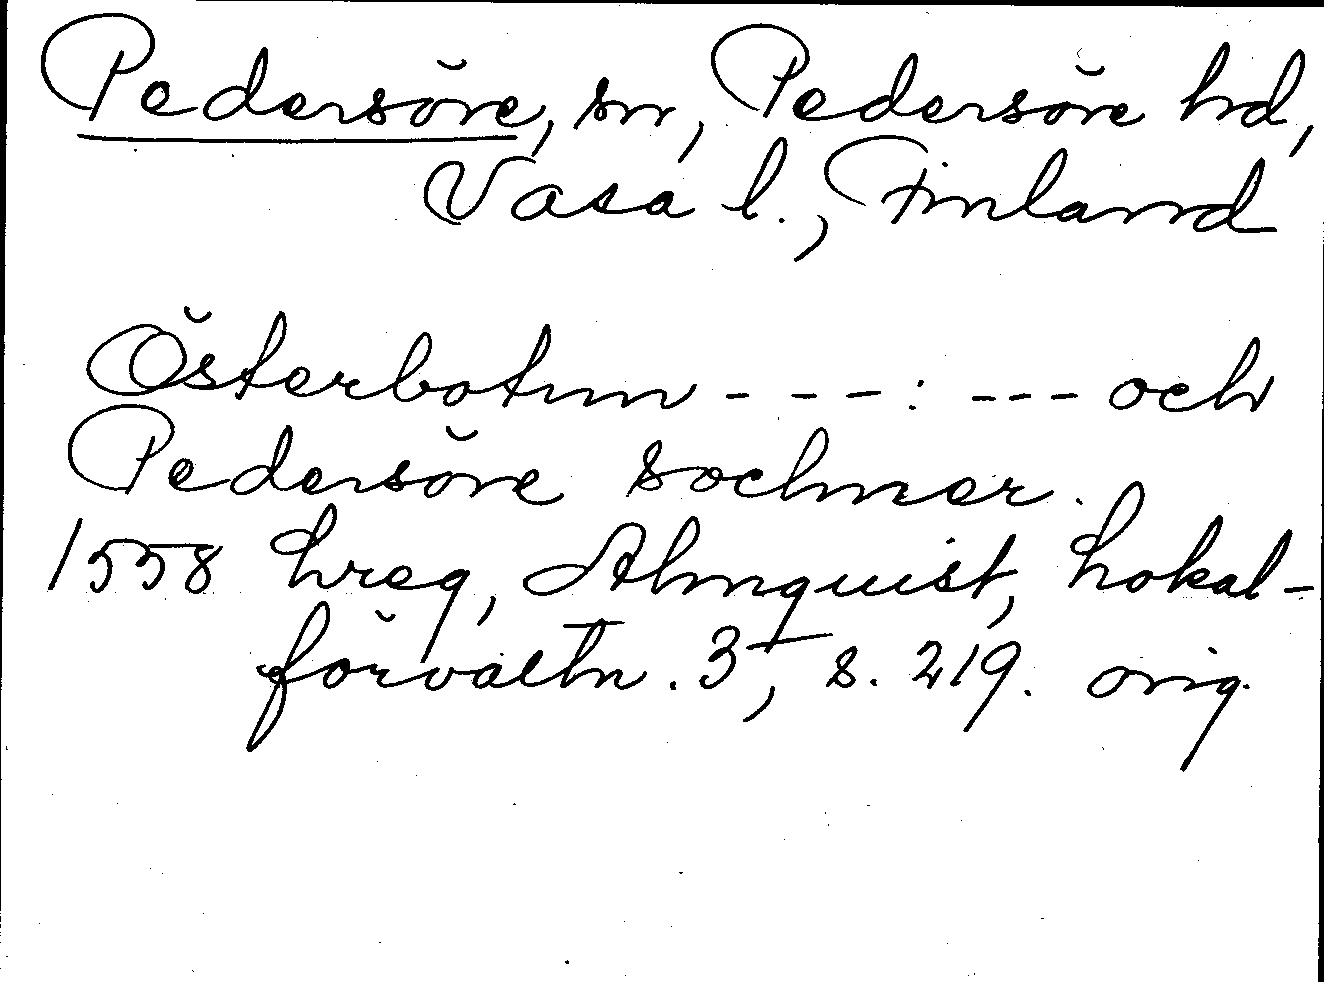 Pedersöre, sn, Pedersöre hd,
Vasa l., Finland
Österbotnn - - - : - - - och
Pedersöre sochner.
1558 Lreg, Almquist, Lokal-
förvaltn. 3, s. 219. orig.